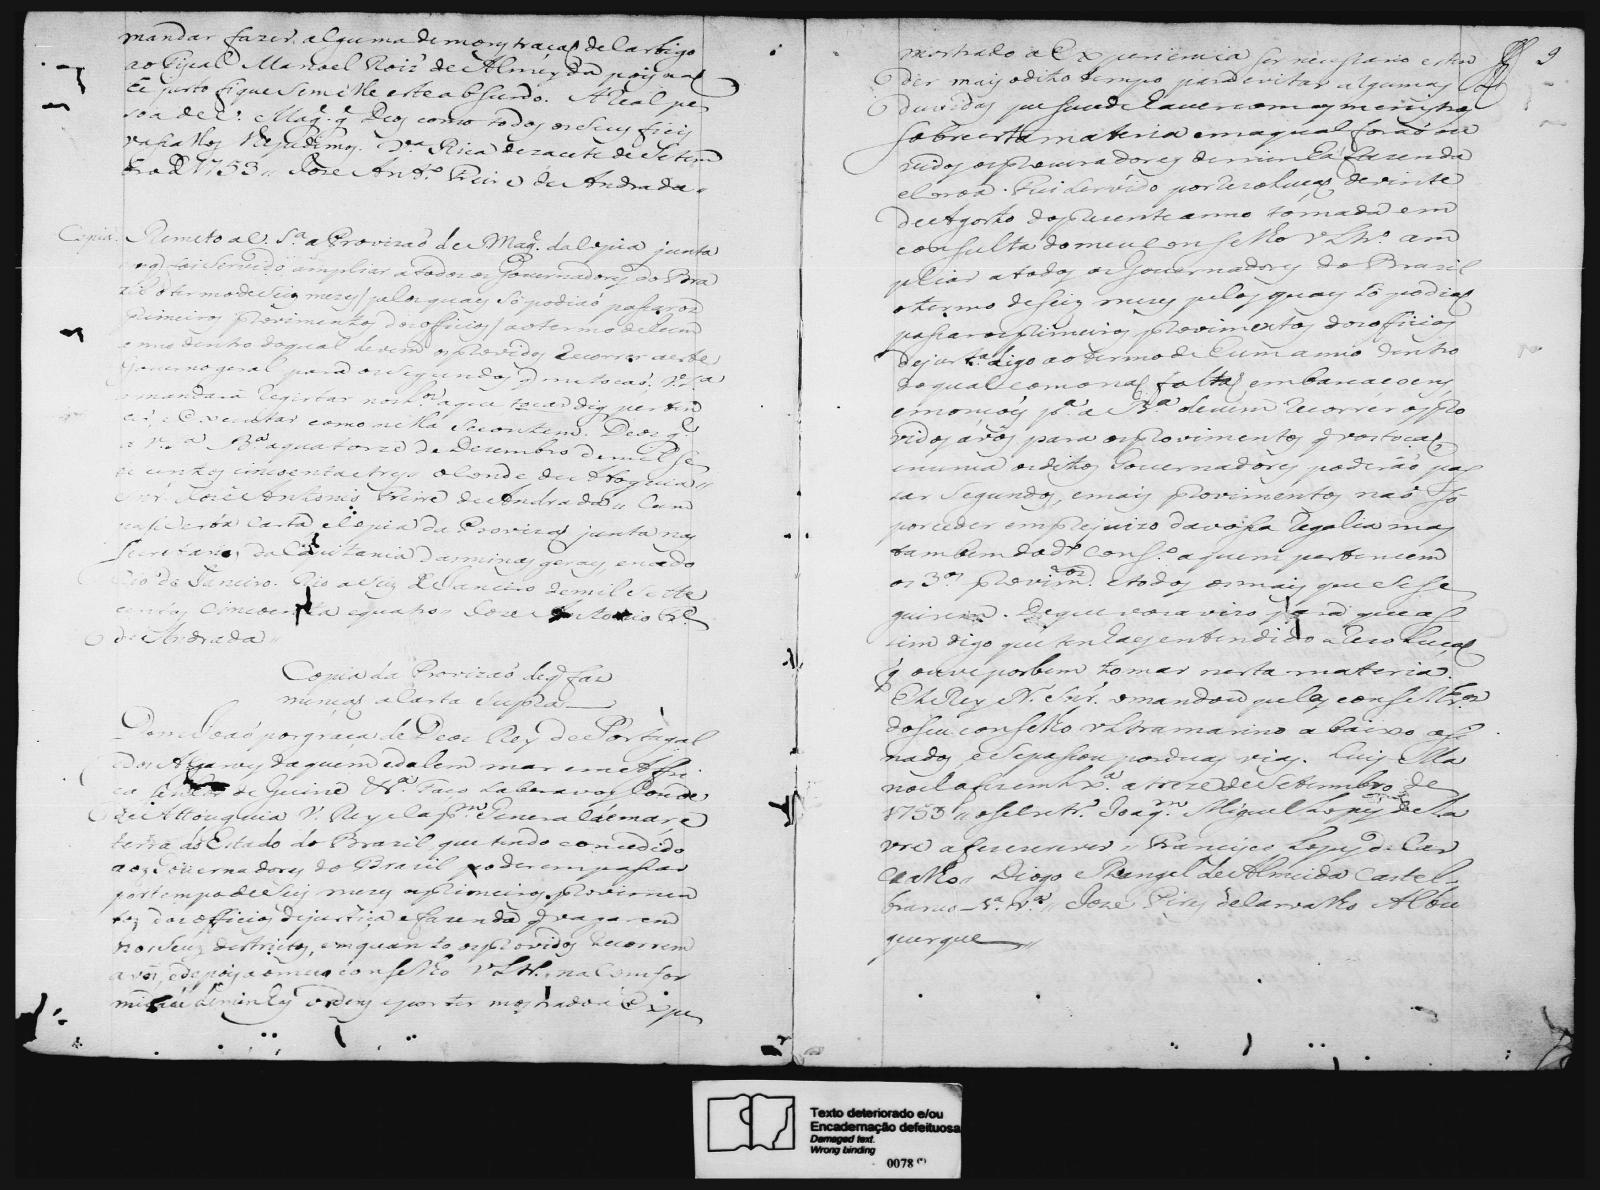 mandar fazer alguma demonstraçaõ de Castigo
ao Fiscal Manoel Roiz de Almeyda pois naõ
hé justo fique sem elle este absurdo. A Real pe
soa de V. Mag.e g.e Deos como todos os seus fieis
vasallos dezejamos. V.a Rica dezacete de Setem
bro d 1753 Joze Ant.o Freire de Andrada
Copia. Remeto a V. S.a a Provizaõ de Mag.e da Copia junta
foi servido ampliar a todos os Governadores do Bra
zil o termo de seis mezes pelos quaes só podiaõ passar os
primeiros provimentos dos officios ao termo de hum
anno dentro do qual devem os providos recorrer a este
Governo geral para os segundos q me tocaõ. V. S.a
a mandará Registar nos
executar como nella se contem. Deos g.e
a V. S.a B.a a quatorze de Dezembro de mil se
te centos sincoenta e tres o Conde de Athoguia
Snr. Joze Antonio Freire de Andrada Cum
prase esta Carta e Copia da Provizaõ junta nas
Secretarias da Capitania das minas geraes e na do
Rio de Janeiro. Rio a seis de Janeiro de mil sete
centos cincoenta e quatro Joze Antonio Fr.e
de Andrada
Copia da Provizaõ de q faz
mençaõ a Carta Supra
Dom Joaõ por graça de Deos Rey de Portugal
e dos Algarves daquem e dalem mar em Afri
ca Senhor de Guiné &.a Faço saber a vos Conde
de Attouguia V. Rey e Cap.m General de mar e
terra do Estado do Brazil que tendo concedido
aos Governadores do Brasil poderem passar
por tempo de seis mezes os primeiros provimen
tos dos officios de justiça e fazenda q vagarem
nos seus destrictos, emquanto os providos recorrem
a vós, e depois ao meu conselho Ultr. na confor
midade de minhas ordens e por ter mostrado a Expe
9
mostrado a Experiencia ser necessario esten
der mais o dito tempo para evitar algumas
duvidas que succede haver com os menistros
sobre esta materia em a qual foraõ ou
vidos os procuradores de minha fazenda
e Coroa. Fui servido por rezoluçaõ de vinte
de Agosto do prezente anno tomada em
consulta do meu conselho Ultr.o am
pliar a todos os Governadores do Brasil
o termo de seis mezes pelos quaes só podiaõ
passar os primeiros provimentos dos officios
de just.a digo ao termo de hum anno dentro
do qual como naõ faltaõ embarcacoens
e monçoes p.a a B.a devem recorrer os pro
vidos a vos para os provimentos q vos tocaõ
e nunca os ditos Governadores poderáo pas
sar segundos, e mais provimentos naõ só
por ceder em prejuizo da vossa regalia mas
tambem do d.o Cons.o a quem pertencem
os 3.os provim.tos e todos os mais que se se
guirem. De que vos avizo para que as
sim digo que tenhaes entendido a Rezoluçaõ
q ouve por bem tomar nesta materia.
El Rey N. Snr. o mandou pelos conselhr.os
do seu conselho ultramarino abaixo asi
nados e se passou por duas vias. Luis Ma
noel a fez em Lx.a a treze de Setembro de
1753 o Secretr.o Joaq.m Miguel Lopes de La
vre a fez escrever Francisco Lopes de Car
valho Diogo Rangel de Almeida Castel
branco S.a V.a Joze Pires de Carvalho Albu
querque
Texto deteriorado e/ou
Encadernação defeituosa
Damaged text.
Wrong binding
0078 (*)